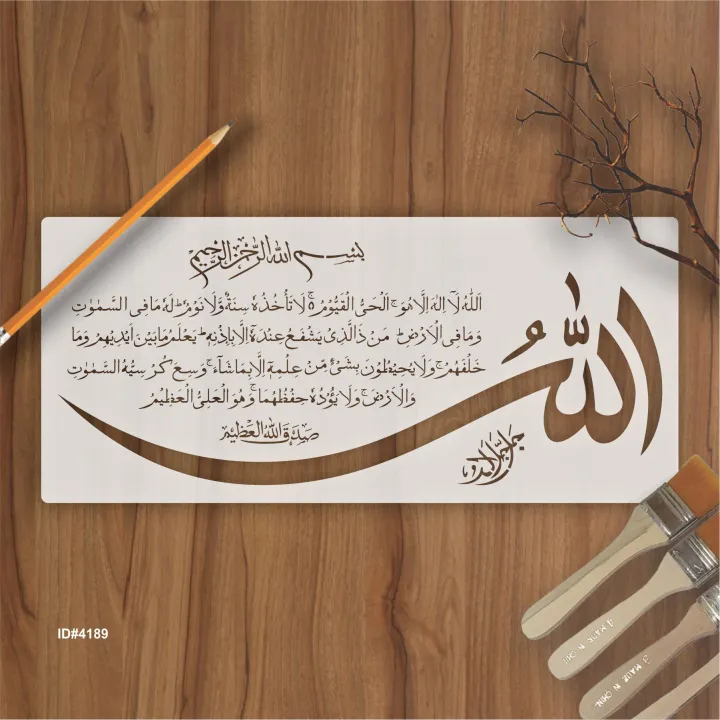 بسم الله الرحمن الرحيم
اَللّٰهُ لَآ اِلٰهَ اِلَّا هُوَ ۚ اَلْحَیُّ الْقَیُّوْمُ ۚ۬ لَا تَاْخُذُهٗ سِنَةٌ وَّلَا نَوْمٌ ؕ لَهٗ مَا فِی السَّمٰوٰتِ
وَمَا فِی الْاَرْضِ ؕ مَنْ ذَا الَّذِیْ یَشْفَعُ عِنْدَهٗۤ اِلَّا بِاِذْنِهٖ ؕ یَعْلَمُ مَا بَیْنَ اَیْدِیْهِمْ وَمَا
خَلْفَهُمْ ۚ وَلَا یُحِیْطُوْنَ بِشَیْءٍ مِّنْ عِلْمِهٖۤ اِلَّا بِمَا شَآءَ ۚ وَسِعَ كُرْسِیُّهُ السَّمٰوٰتِ
وَالْاَرْضَ ۚ وَلَا یَـُٔوْدُهٗ حِفْظُهُمَا ۚ وَهُوَ الْعَلِیُّ الْعَظِیْمُ
صدق الله العظيم
الله
جل جلاله
ID#4189
MADE IN CHIN
MADE IN CHIN